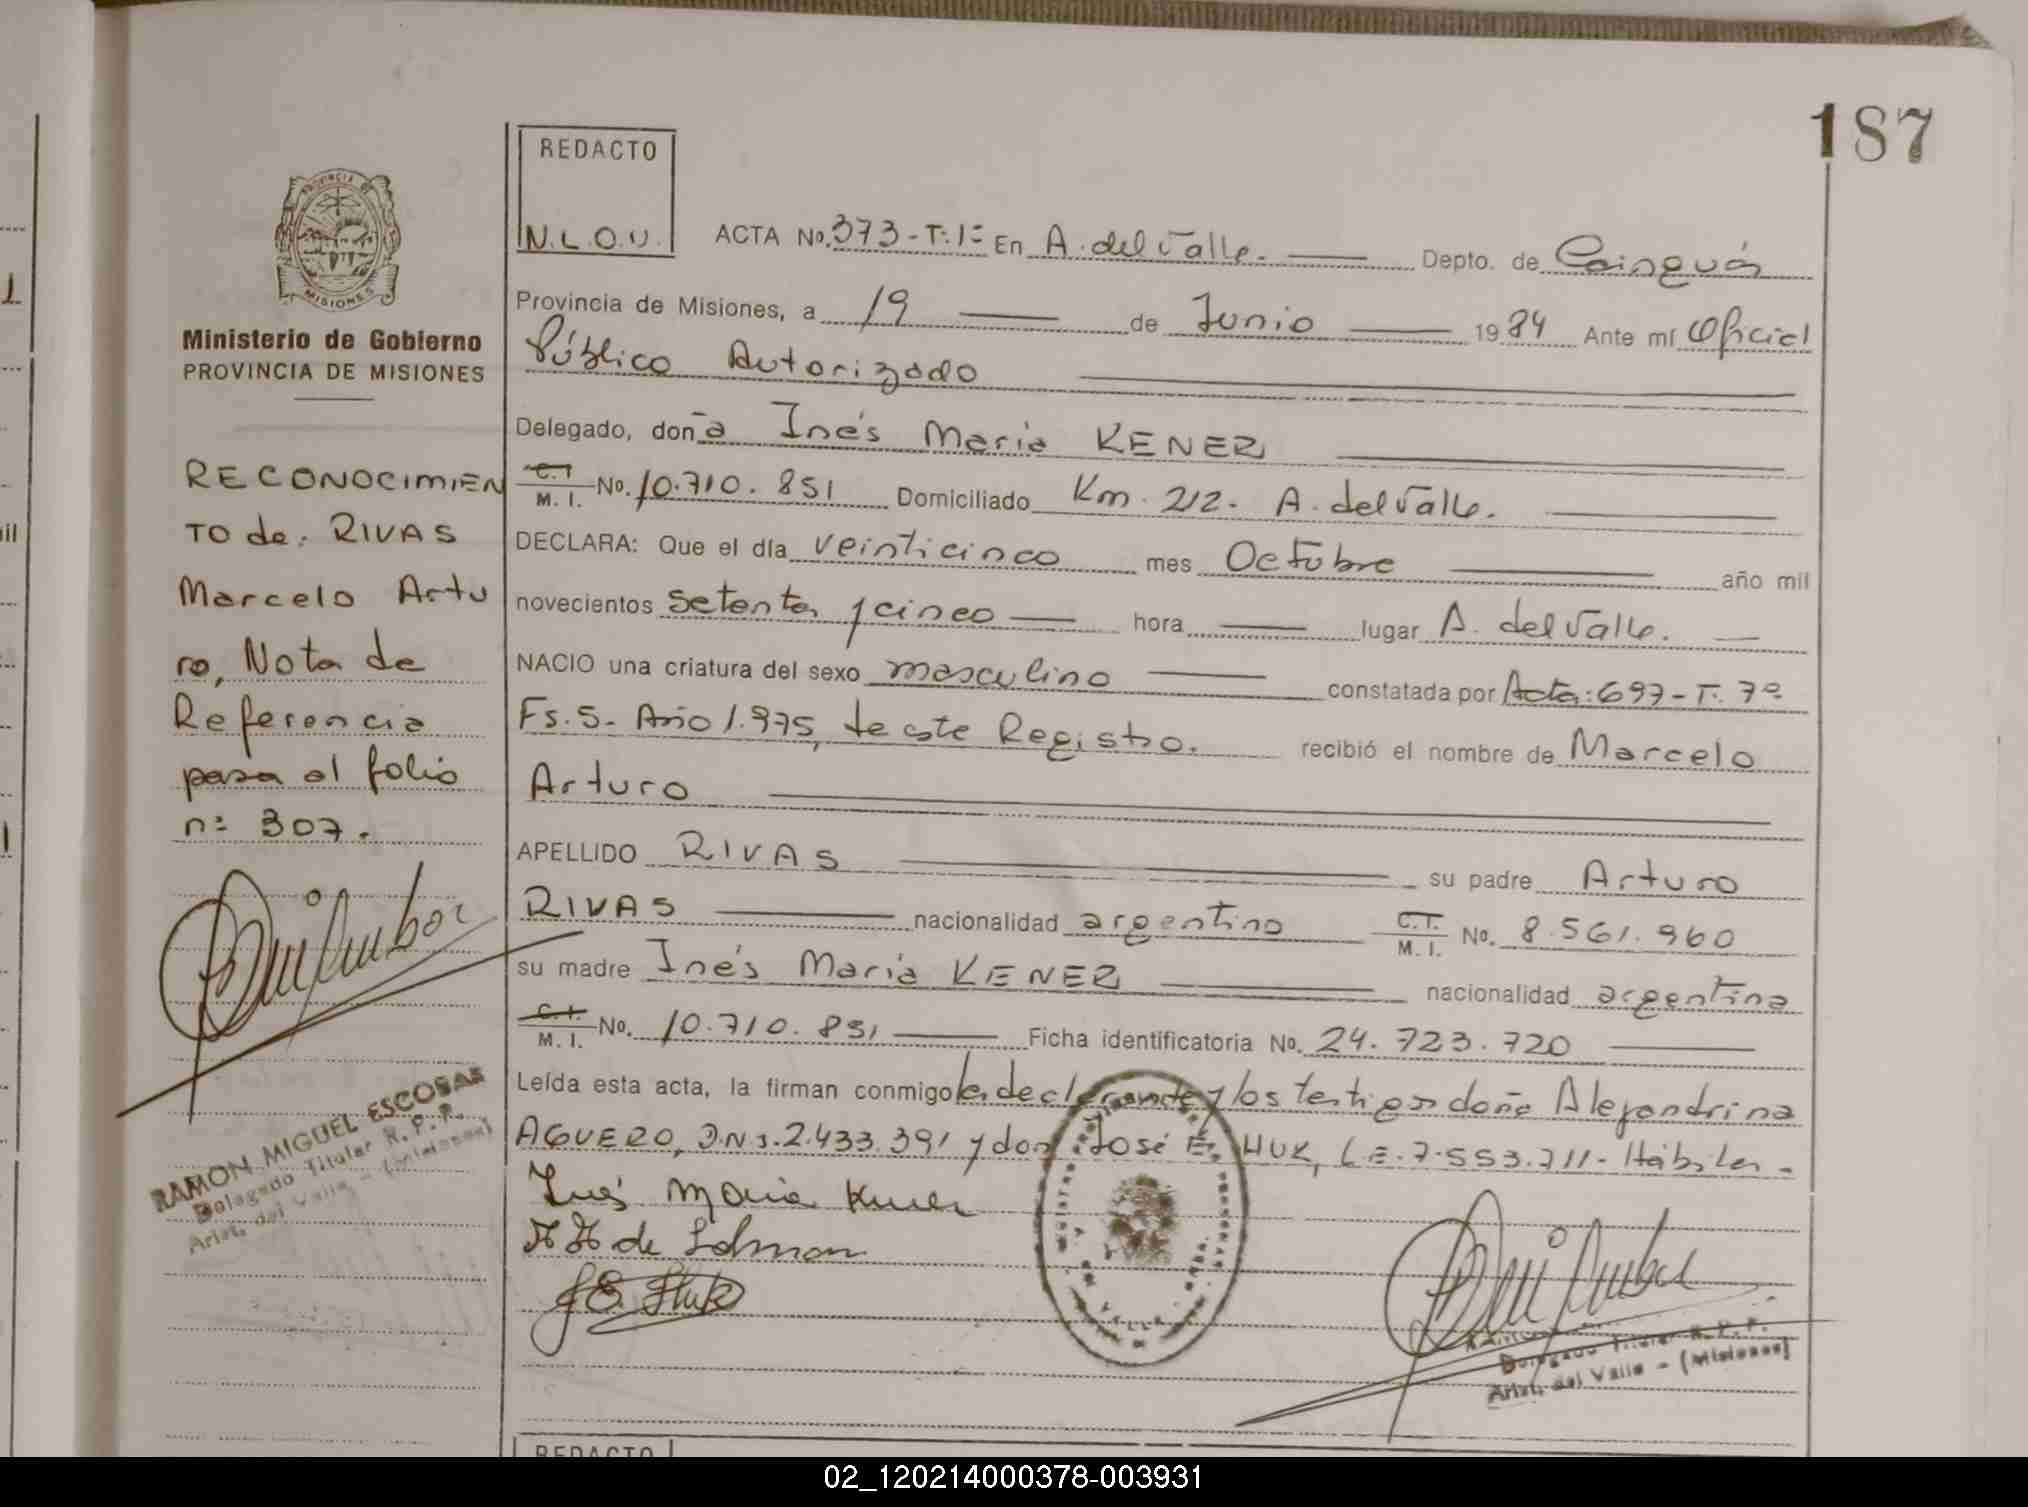 187
PROVINCIA DE
MISIONES
Ministerio de Gobierno
PROVINCIA DE MISIONES
RECONOCIMIEN
TO de: RIVAS
Marcelo Artu
ro, Nota de
Referencia
pasa al folio
nº 307.
RAMON MIGUEL ESCOBAR
Delegado Titular R.P.P.
Arist. del Valle - (Misiones)
REDACTO
N.L.O.U.
ACTA No. 373-T:1º En A. del Valle. Depto. de Cainguás
Provincia de Misiones, a 19 de Junio 1984 Ante mí Oficial
Público Autorizado
Delegado, doña Inés María KENER
C.I. M. I. No. 10.710.851 Domiciliado Km. 212. A. del Valle.
DECLARA: Que el día veinticinco mes Octubre año mil
novecientos setenta y cinco hora lugar A. del Valle.
NACIO una criatura del sexo masculino constatada por Acta: 697-T: 7º
Fs. 5- Año 1.975, de este Registro. recibió el nombre de Marcelo
Arturo
APELLIDO RIVAS su padre Arturo
RIVAS nacionalidad argentino C.I. M. I. No. 8.561.960
su madre Inés María KENER nacionalidad argentina
C.I. M. I. No. 10.710.851 Ficha identificatoria No. 24.723.720
Leída esta acta, la firman conmigo la declarante y los testigos doña Alejandrina
AGUERO, D.N.I. 2.433.391 y don José E. HUK, L.E. 7.553.711- Hábiles-
Inés María Kener
J. E. Huk
Delegado Titular R.P.P.
Arist. del Valle - (Misiones)
REDACTO
02_120214000378-003931